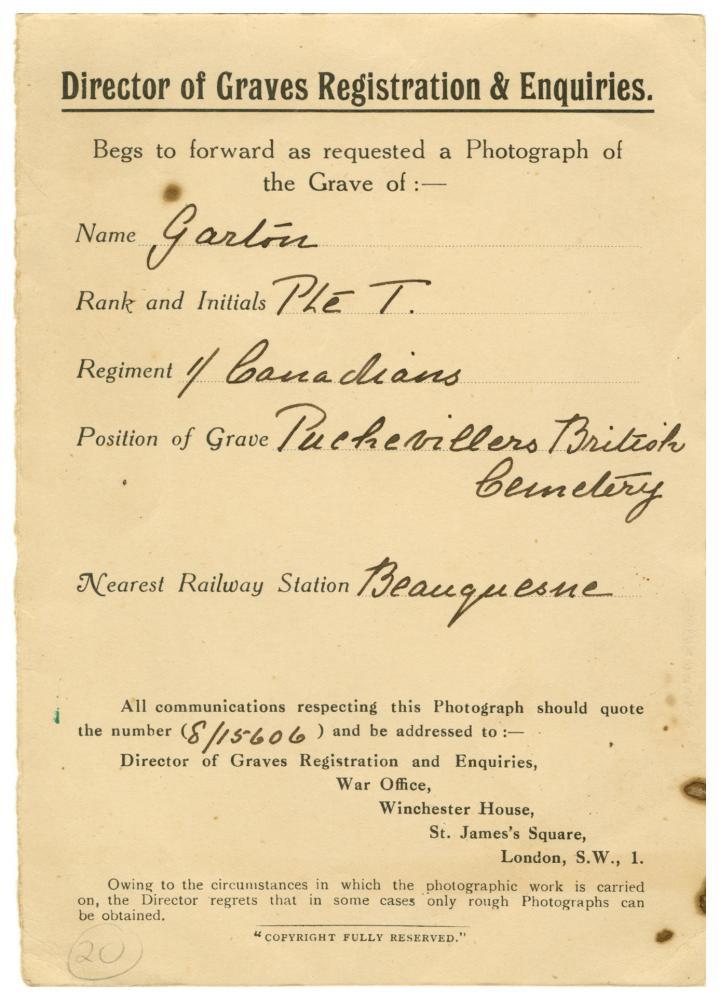 Director of Graves Registration & Enquiries.
Begs to forward as requested a Photograph of
the Grave of :—
Name Garton
Rank and Initials Pte T.
Regiment 1/ Canadians
Position of Grave Puchevillers British
Cemetery
Nearest Railway Station Beauquesne
All communications respecting this Photograph should quote
the number (8/15606) and be addressed to :—
Director of Graves Registration and Enquiries,
War Office,
Winchester House,
St. James's Square,
London, S.W., 1.
Owing to the circumstances in which the photographic work is carried
on, the Director regrets that in some cases only rough Photographs can
be obtained.
"COPYRIGHT FULLY RESERVED."
20